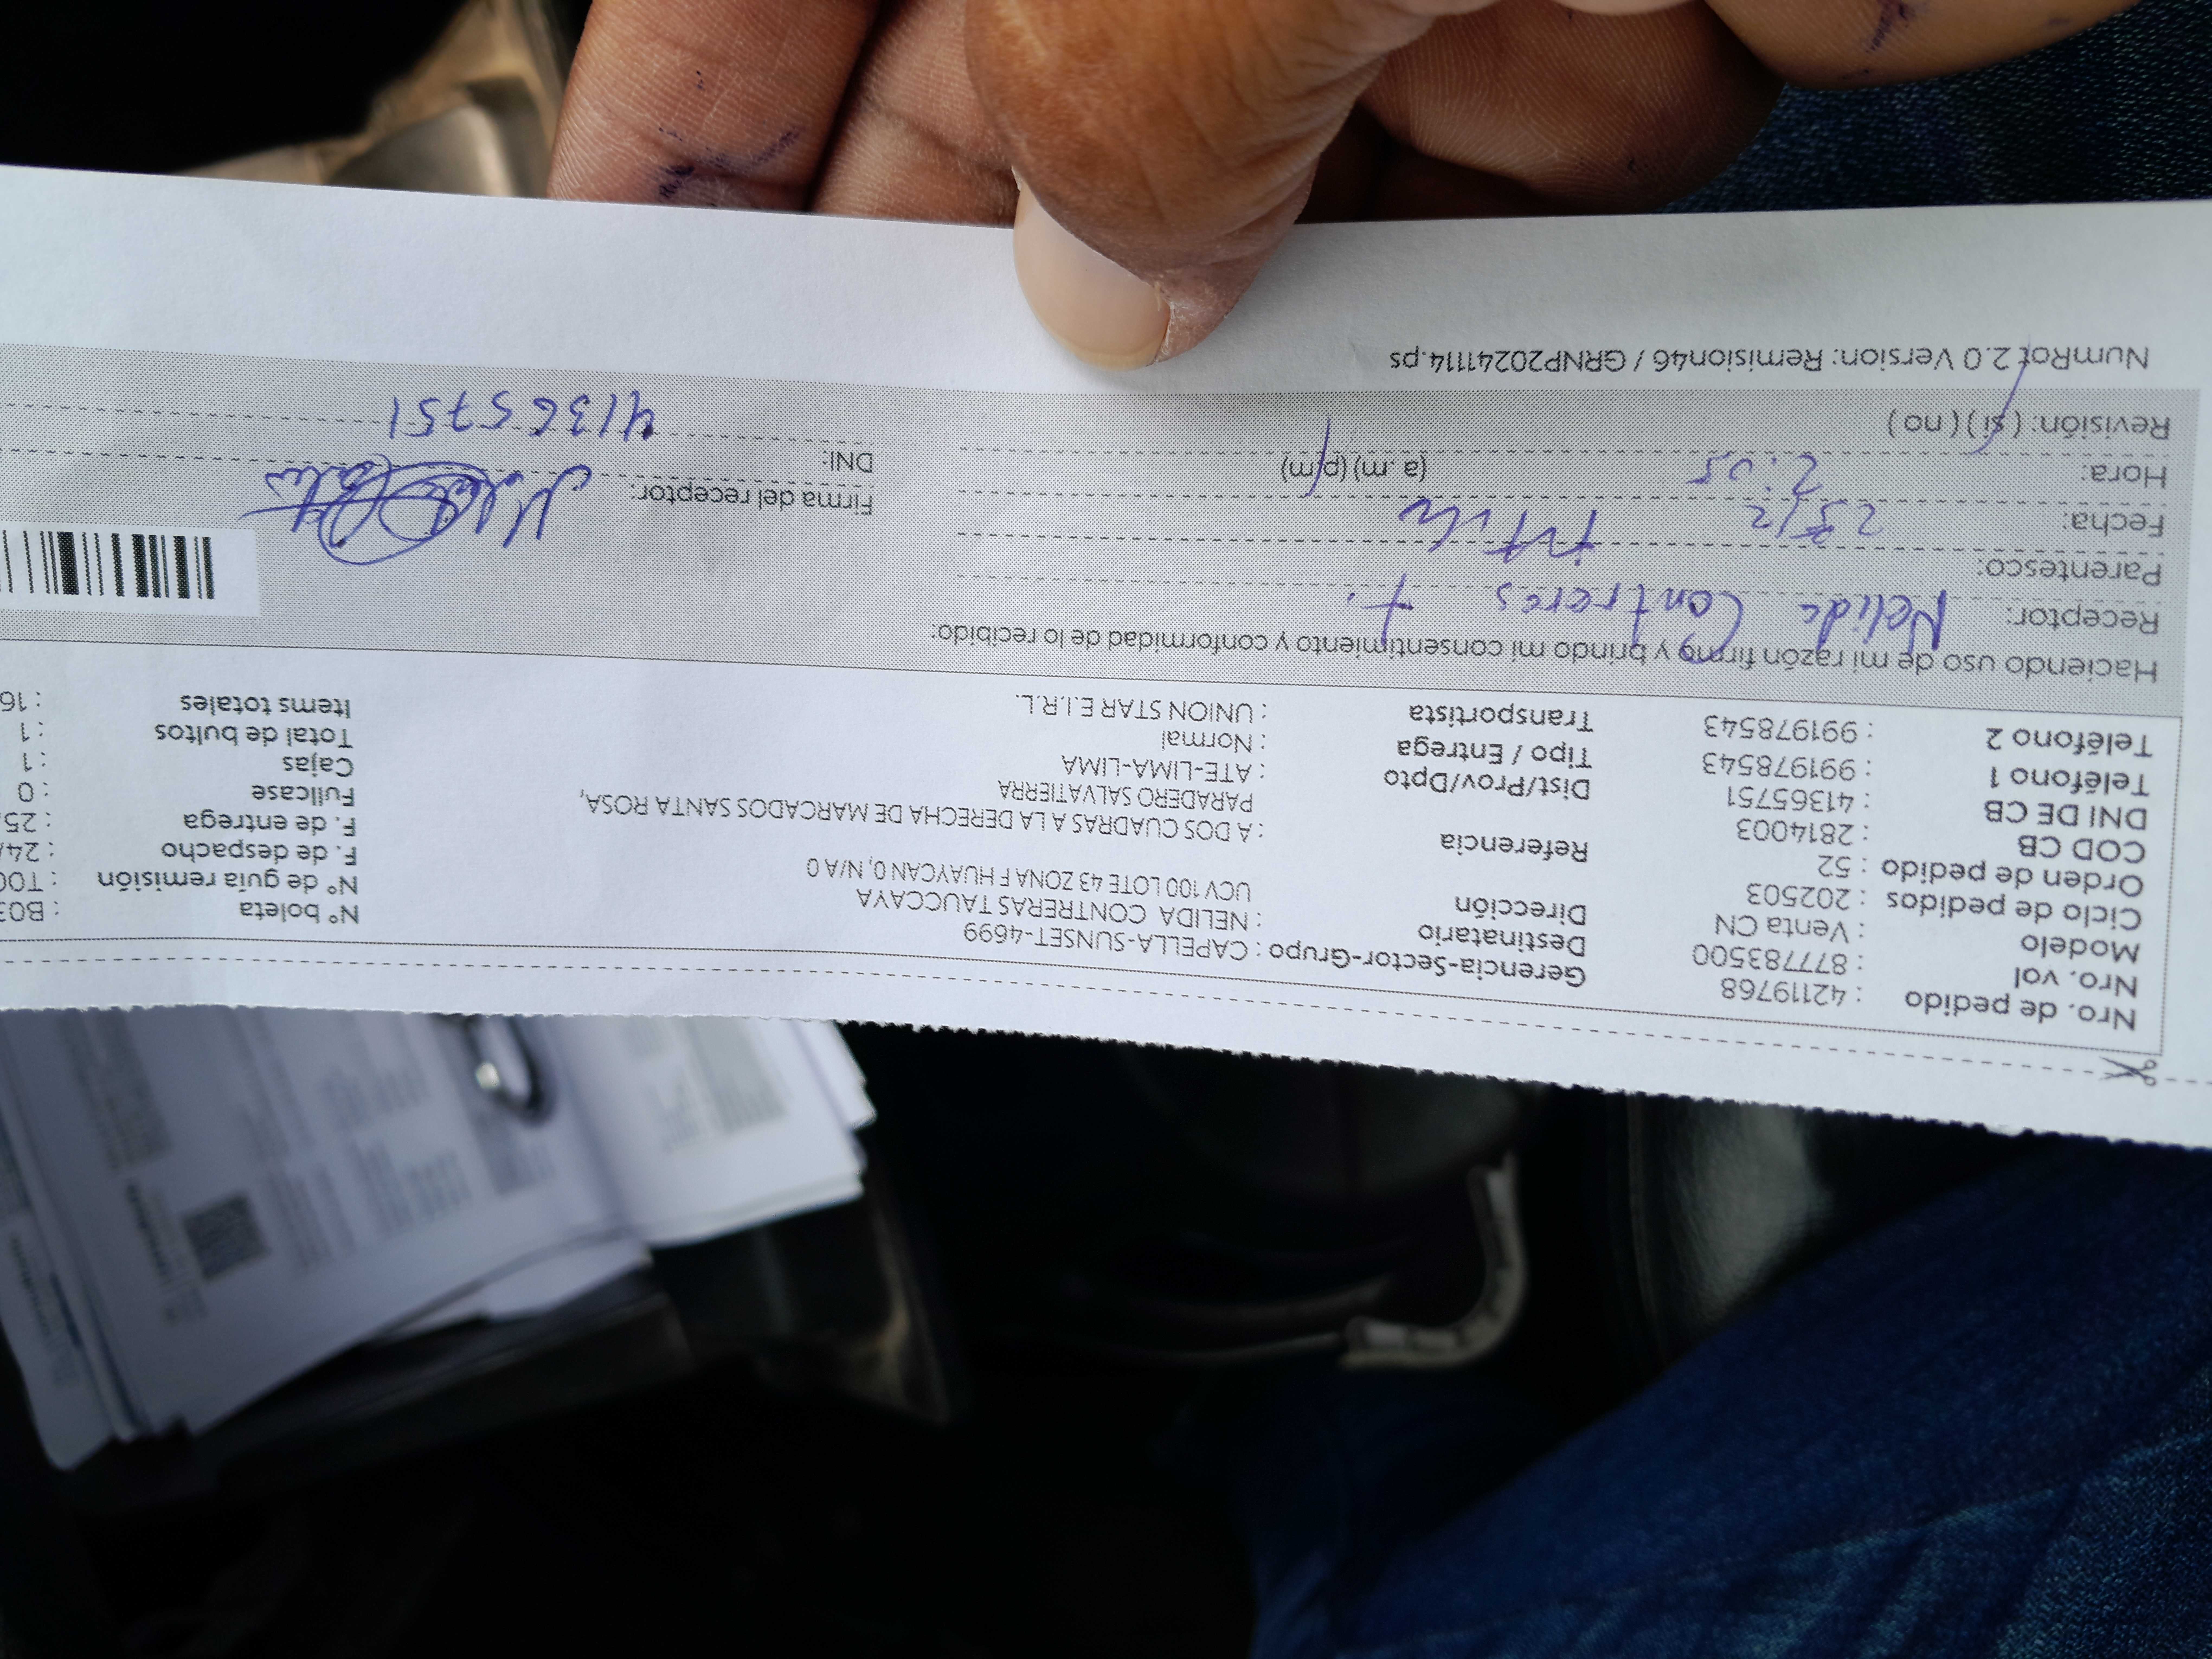 Nro. de pedido : 42119768
Nro. vol : 877783500
Modelo : Venta CN
Ciclo de pedidos : 202503
Orden de pedido : 52
COD CB : 2814003
DNI DE CB : 41365751
Teléfono 1 : 991978543
Teléfono 2 : 991978543
Gerencia-Sector-Grupo : CAPELLA-SUNSET-4699
Destinatario : NELIDA CONTRERAS TAUCCAYA
Dirección UCV 100 LOTE 43 ZONA F HUAYCAN 0, N/A 0
Referencia : A DOS CUADRAS A LA DERECHA DE MARCADOS SANTA ROSA,
PARADERO SALVATIERRA
Dist/Prov/Dpto : ATE-LIMA-LIMA
Tipo / Entrega : Normal
Transportista : UNION STAR E.I.R.L.
N° boleta : B03
N° de guía remisión : T00
F. de despacho : 24/
F. de entrega : 25
Fullcase : 0
Cajas : 1
Total de bultos : 1
Items totales : 16
Haciendo uso de mi razón firmo y brindo mi consentimiento y conformidad de lo recibido:
Receptor: Nelida Contreras T.
Parentesco: titular
Fecha: 25/2
Hora: 2:05 (a.m) (p/m)
Revisión: (si) (no)
Firma del receptor:
DNI: 41365751
NumRot 2.0 Version: Remision46 / GRNP20241114.ps